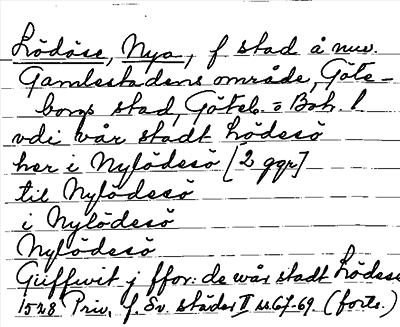 Lödöse, Nya, f stad å nuv.
Gamlestadens område, Göte-
borgs stad, Göteb. o Boh. l
vdi vår stadt Lödesö
her i Nylödesö [2 ggr]
til Nylödesö
i Nylödesö
Nylödesö
Giiffwit j ffor: de wår stadt Lödesö
1528 Priv. f. Sv. städer II ss. 67-69. (forts.)